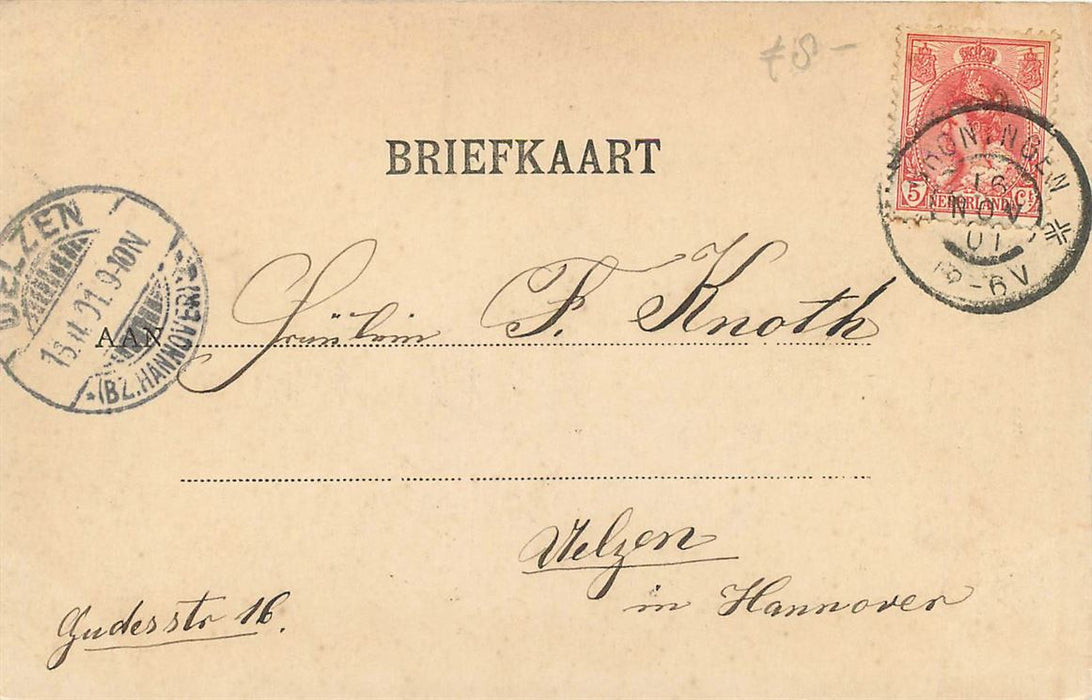 f 8 -
BRIEFKAART
GRONINGEN
16
NOV
01
5 NEDERLAND Ct
-6 V
UELZEN
9-10N.
*(BZ.HANNOVER)
AAN Fräulein F. Knoth
Uelzen
in Hannover
Gudesstr 16.